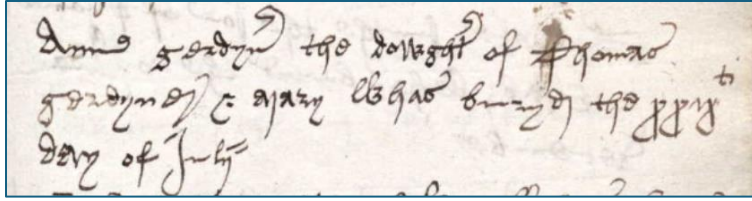 Anne gerdyner the dowghter of Thomas
gerdyner & mary Whas buryed the xxix ti
day of July